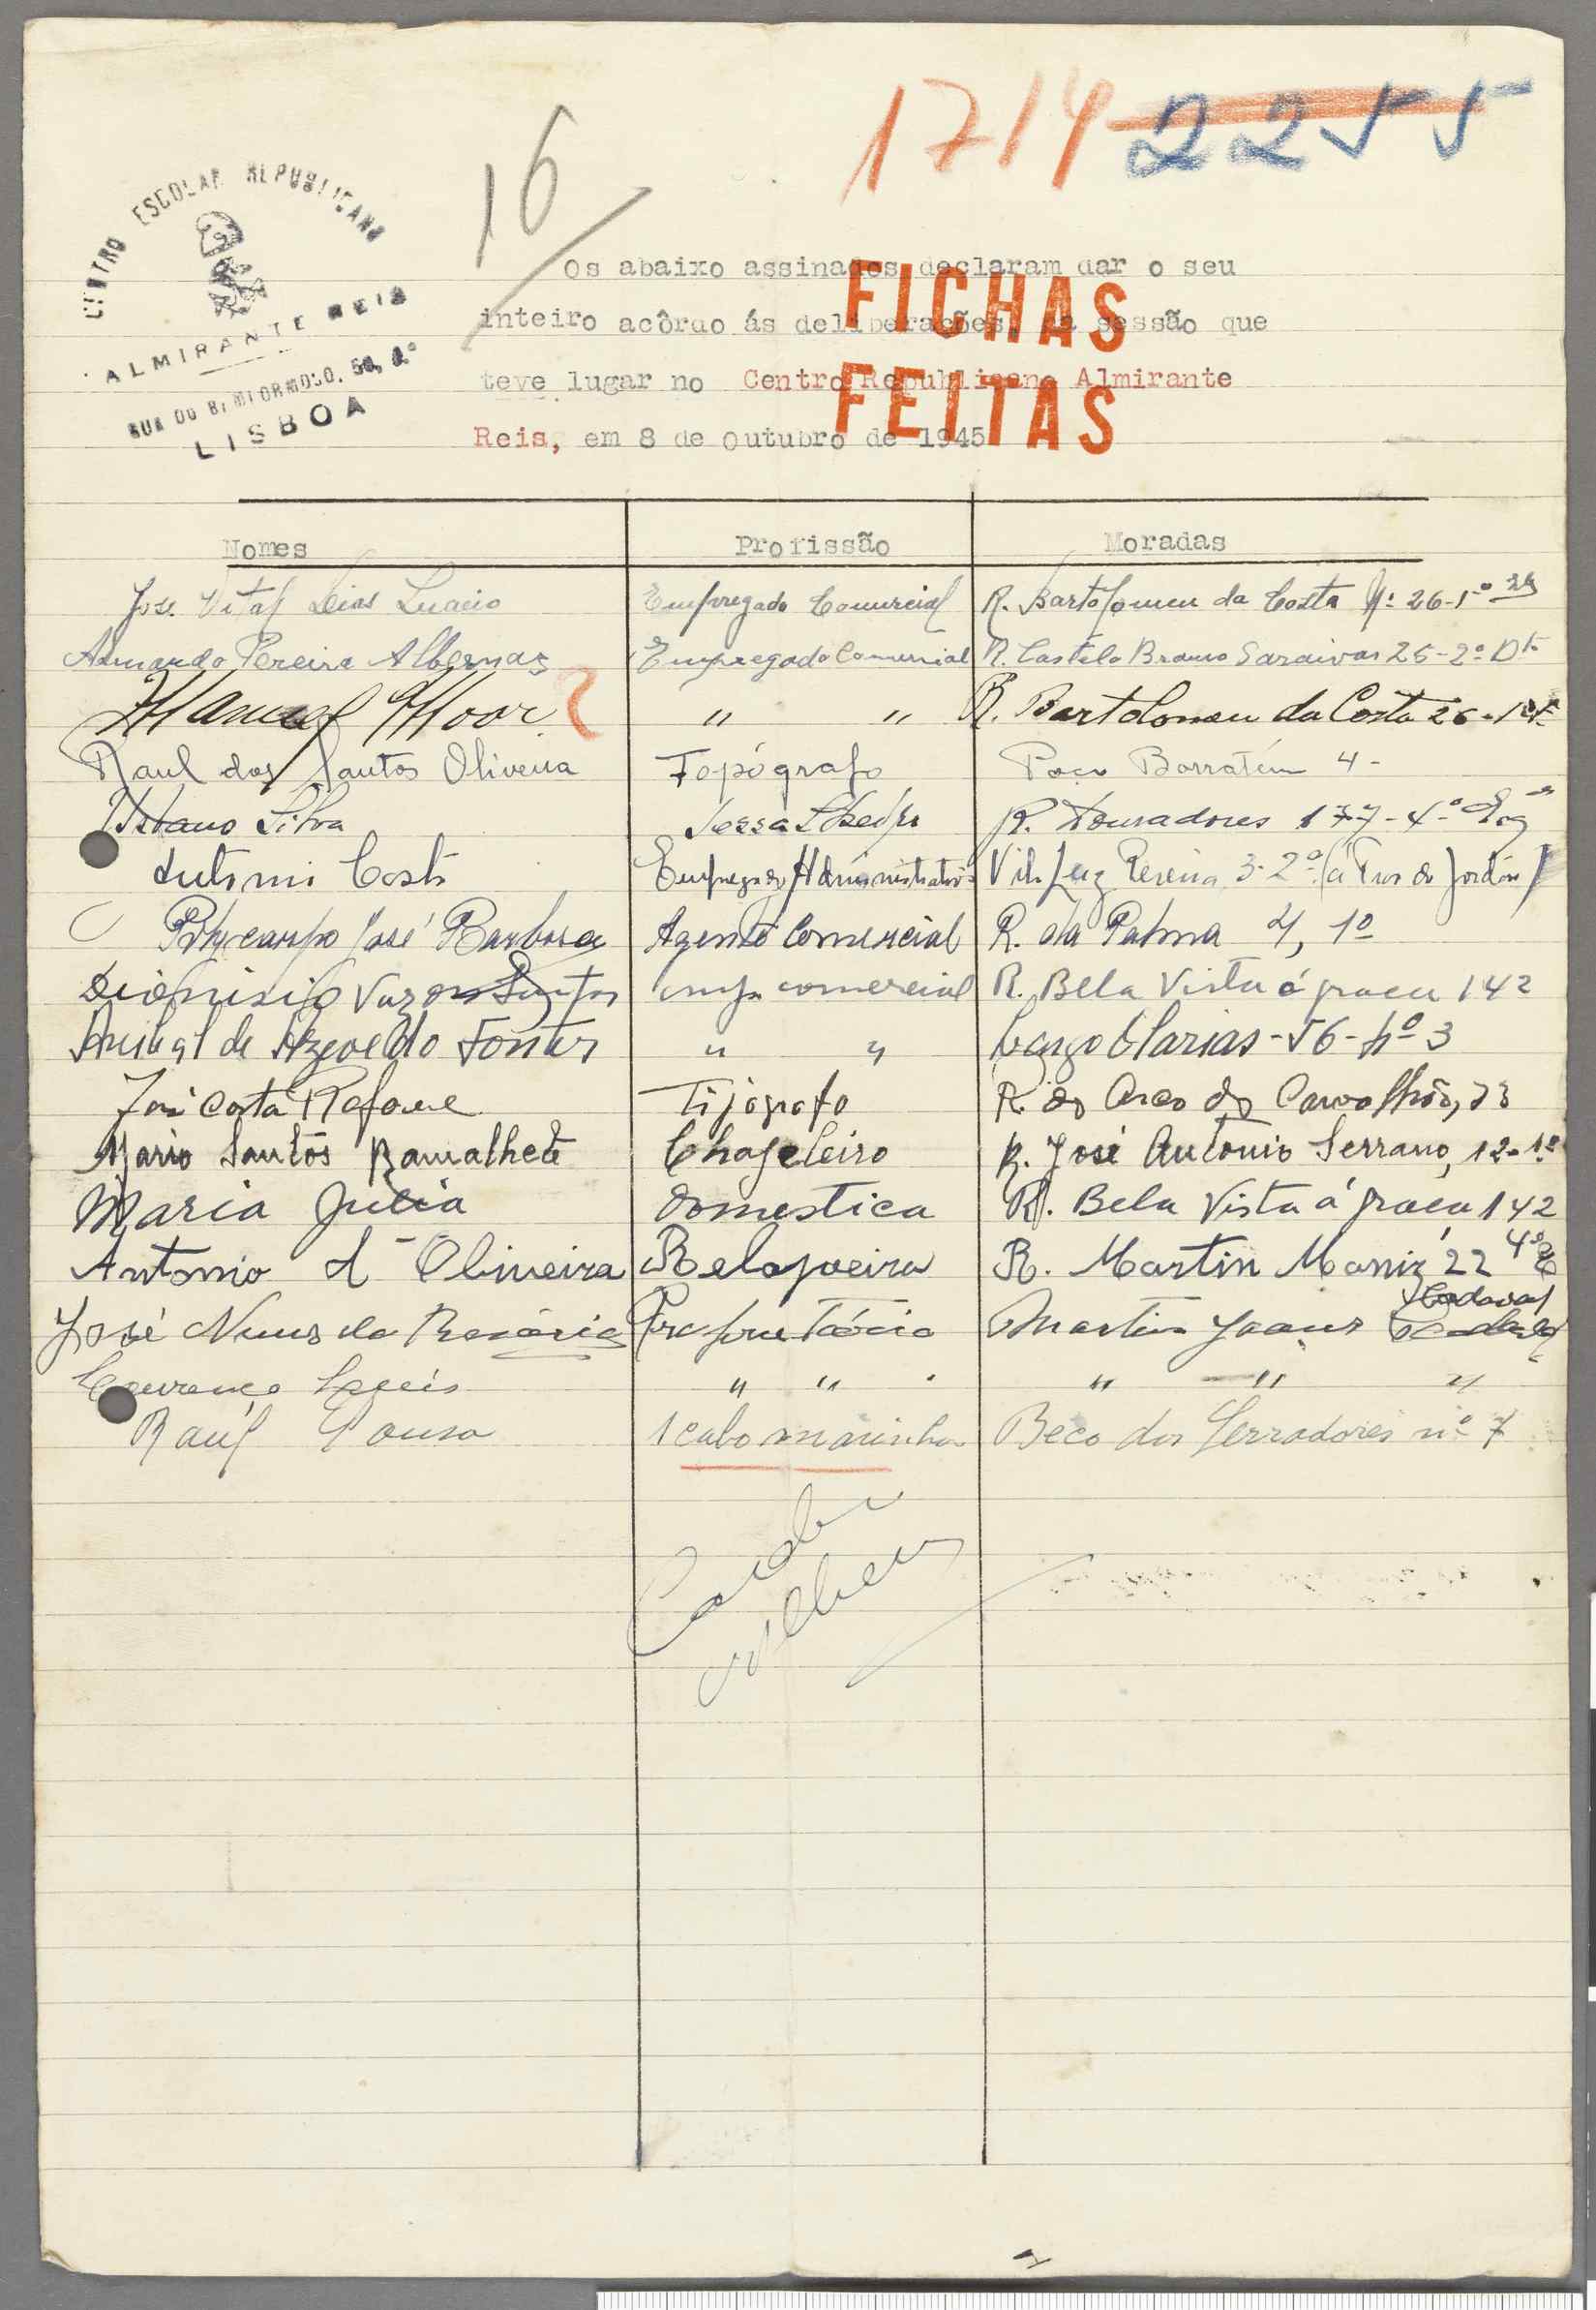 1714 2255
16
CENTRO ESCOLAR REPUBLICANO
ALMIRANTE REIS
RUA DO BEMFORMOSO, 50, 2.º
LISBOA
Os abaixo assinados declaram dar o seu
inteiro acôrdo ás deliberações, da sessão que
teve lugar no Centro Republicano Almirante
Reis, em 8 de Outubro de 1945
FICHAS
FEITAS
Nomes Profissão Moradas
José Vital Dias Empregado Comercial R. Bartolomeu da Costa Nº 26-1º
Armando Pereira Albernaz Empregado Comercial R. Castelo Branco Saraiva 25-2º Dt.
Manuel Moor " " R. Bartolomeu da Costa 26-1º
Raul dos Santos Oliveira Topógrafo Poço Borratém 4-
Silva R. Douradores 177-4º Esq
Costa Empregado Administrativo Vila Luz Pereira 3-2º
Polycarpo José Barbosa Agente Comercial R. da Palma 4, 1º
Dionisio Vaz dos Santos emp. comercial R. Bela Vista á graça 142
Anibal de Azevedo Fontes " " Largo Olarias-56-nº 3
José Costa Tipógrafo R. do Arco do Carvalhão, 73
Mario Santos Ramalhete Chapeleiro R. José Antonio Serrano, 12-1º
Maria Julia domestica R. Bela Vista á graça 142
Antonio d'Oliveira Relojoeiro R. Martin Moniz 22 4º E
José Nunes do Rosário Proprietário Martin Joanes Cadaval
Lourenço " " " " "
Raúl Sousa 1 cabo marinha Beco dos Serradores nº 7